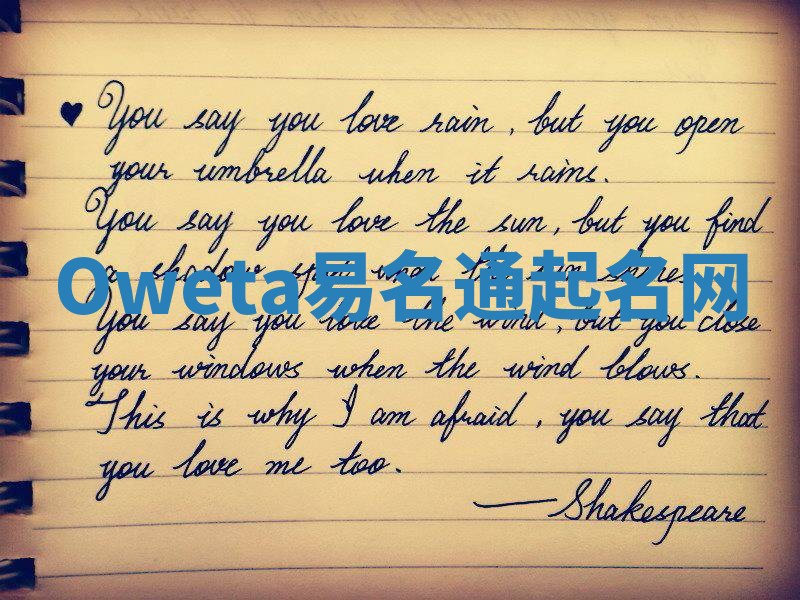 ♥ You say you love rain, but you open
your umbrella when it rains.
You say you love the sun, but you find
a shadow spot when the sun shines
Oweta易名通起名网
You say you love the wind, but you close
your windows when the wind blows.
This is why I am afraid, you say that
you love me too.
—Shakespeare